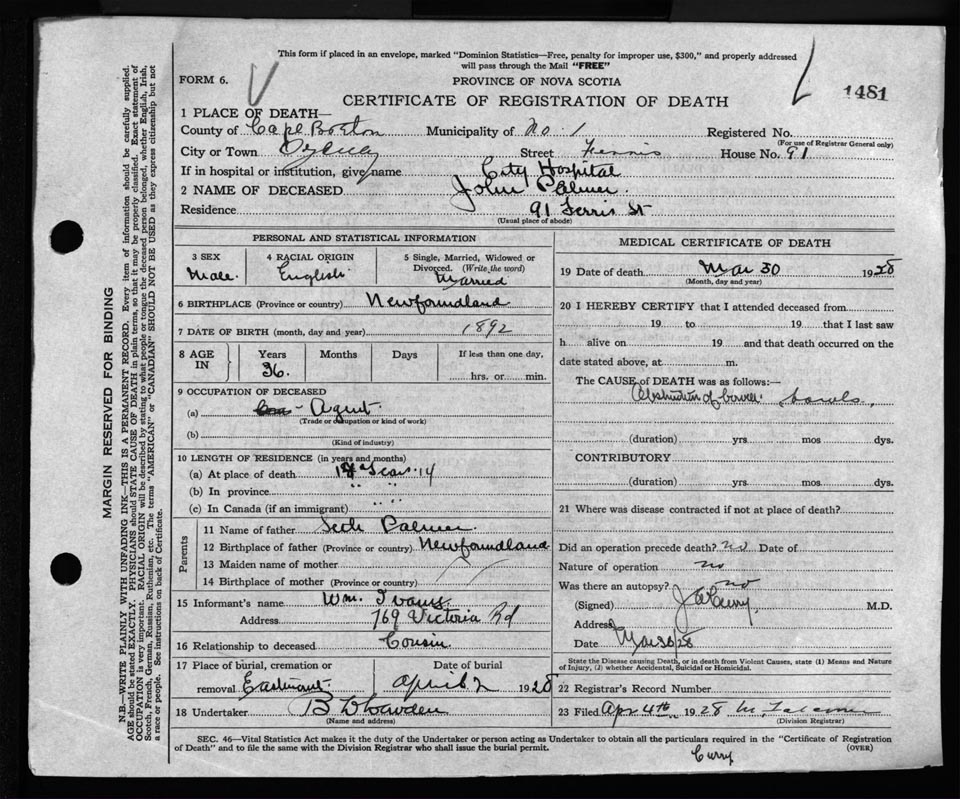 This form if placed in an envelope, marked "Dominion Statistics—Free, penalty for improper use, $300," and properly addressed
will pass through the Mail "FREE"
FORM 6.
PROVINCE OF NOVA SCOTIA
1481
CERTIFICATE OF REGISTRATION OF DEATH
1 PLACE OF DEATH—
County of Cape Breton Municipality of No. 1 Registered No.
(For use of Registrar General only)
City or Town Sydney Street Ferris House No. 91
If in hospital or institution, give name City Hospital
2 NAME OF DECEASED John Palmer.
Residence 91 Ferris St
(Usual place of abode)
PERSONAL AND STATISTICAL INFORMATION
3 SEX 4 RACIAL ORIGIN 5 Single, Married, Widowed or
Divorced. (Write the word)
Male. English Married
6 BIRTHPLACE (Province or country) Newfoundland
7 DATE OF BIRTH (month, day and year) 1892
8 AGE IN Years Months Days If less than one day,
36. hrs. or min.
9 OCCUPATION OF DECEASED
(a) Agent.
(Trade or occupation or kind of work)
(b)
(Kind of industry)
10 LENGTH OF RESIDENCE (in years and months)
(a) At place of death Years 14
(b) In province " "
(c) In Canada (if an immigrant) " "
Parents
11 Name of father Palmer.
12 Birthplace of father (Province or country) Newfoundland
13 Maiden name of mother
14 Birthplace of mother (Province or country)
15 Informant's name Wm.
Address 769 Victoria Rd
16 Relationship to deceased Cousin.
17 Place of burial, cremation or Date of burial
removal Eastmount April 2 1928
18 Undertaker
(Name and address)
MEDICAL CERTIFICATE OF DEATH
19 Date of death Mar 30 1928
(Month, day and year)
20 I HEREBY CERTIFY that I attended deceased from
19 to 19 that I last saw
h alive on 19 and that death occurred on the
date stated above, at m.
The CAUSE of DEATH was as follows:—
Obstruction of bowel bowels.
(duration) yrs. mos. dys.
CONTRIBUTORY
(duration) yrs. mos. dys.
21 Where was disease contracted if not at place of death?
Did an operation precede death? no Date of
Nature of operation no
Was there an autopsy? no
(Signed) Curry, M.D.
Address
Date Mar 30 28
State the Disease causing Death, or in death from Violent Causes, state (1) Means and Nature
of Injury, (2) whether Accidental, Suicidal or Homicidal.
22 Registrar's Record Number
23 Filed Apr 4th 1928
(Division Registrar)
SEC. 46—Vital Statistics Act makes it the duty of the Undertaker or person acting as Undertaker to obtain all the particulars required in the "Certificate of Registration
of Death" and to file the same with the Division Registrar who shall issue the burial permit.
(OVER)
Curry
MARGIN RESERVED FOR BINDING
N.B.—WRITE PLAINLY WITH UNFADING INK—THIS IS A PERMANENT RECORD. Every item of information should be carefully supplied.
AGE should be stated EXACTLY. PHYSICIANS should STATE CAUSE OF DEATH in plain terms, so that it may be properly classified. Exact statement of
OCCUPATION is very important. RACIAL ORIGIN will be described by stating to what people or tongue the deceased person belonged, whether English, Irish,
Scotch, French, German, Russian, Ruthenian, etc. The terms "AMERICAN" or "CANADIAN" SHOULD NOT BE USED as they express citizenship but not
a race or people. See instructions on back of Certificate.